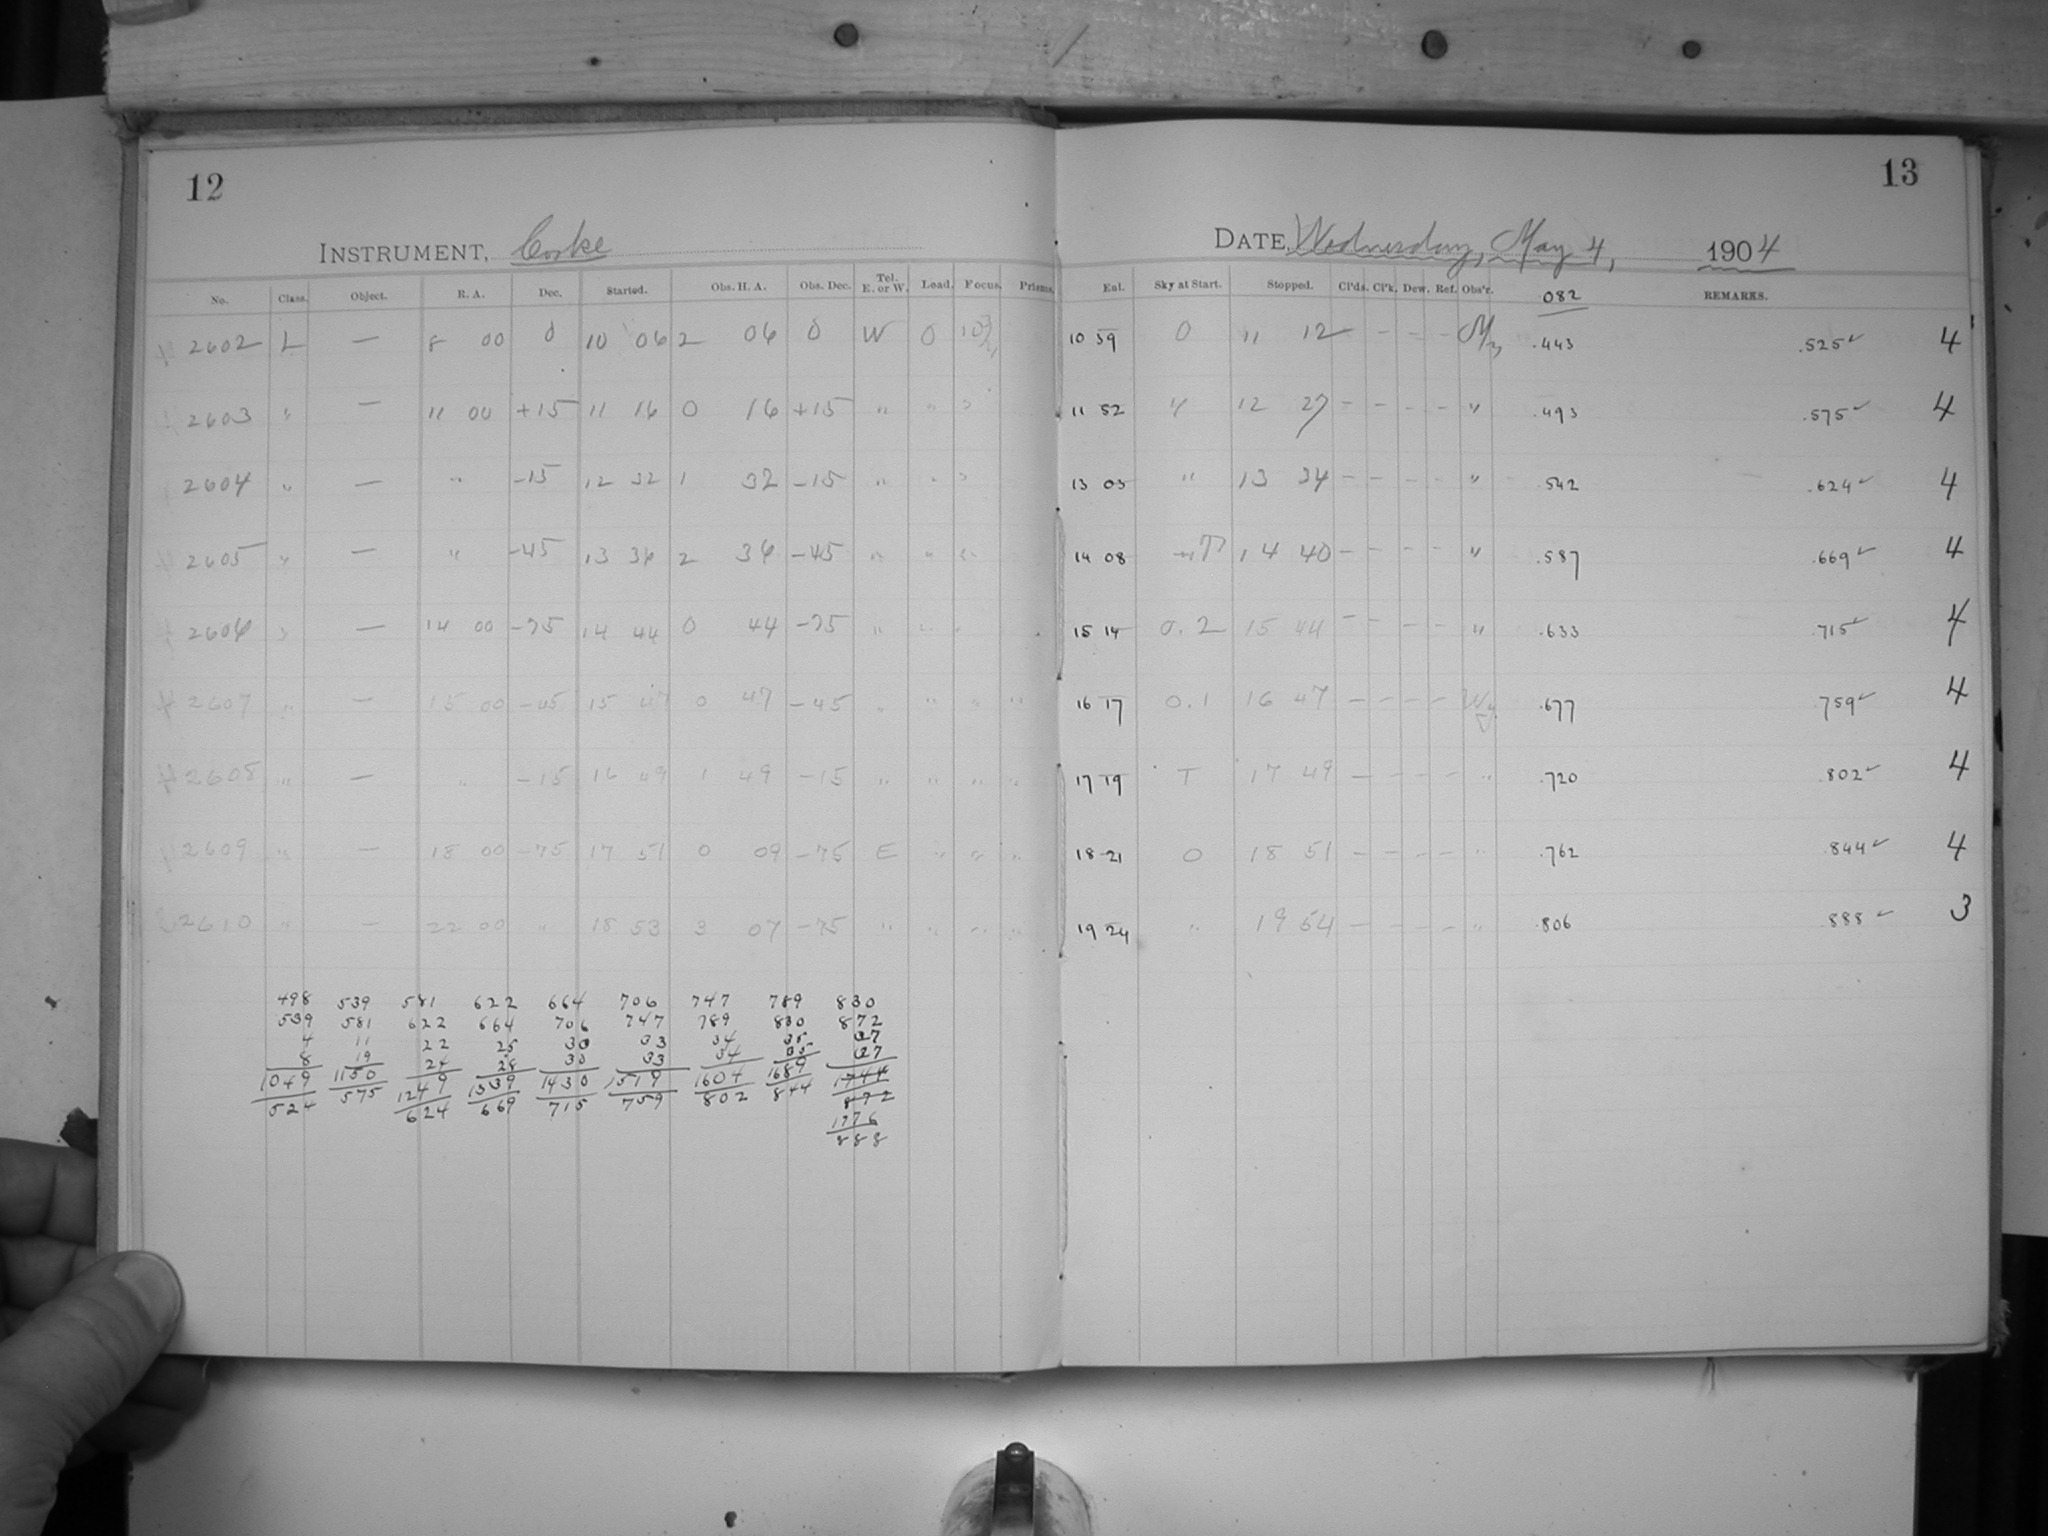 12
INSTRUMENT, Cooke
No. Class. Object. R. A. Dec. Started. Obs. H. A. Obs. Dec. Tel. E. or W. Load. Focus. Prisms.
2602 L — 8 00 0 10 06 2 06 0 W 0
2603 " — 11 00 +15 11 16 0 16 +15 " "
2604 " — " -15 12 32 1 32 -15 " "
2605 " — " -45 13 36 2 36 -45 " " "
2606 " — 14 00 -75 14 44 0 44 -75 " " "
2607 " — 15 00 -45 15 47 0 47 -45 " " " "
2608 " — " -15 16 49 1 49 -15 " " " "
2609 " — 18 00 -75 17 51 0 09 -75 E " " "
2610 " — 22 00 " 18 53 3 07 -75 " " " "
498 539 581 622 664 706 747 789 830
539 581 622 664 706 747 789 830 872
4 11 22 25 30 33 34 35 37
8 19 24 28 30 33 34 35 37
1049 1150 1249 1339 1430 1519 1604 1689 1744
524 575 624 669 715 759 802 844 872
1776
888
13
DATE, Wednesday, May 4, 1904
Eul. Sky at Start. Stopped. Cl'ds. Cl'k. Dew. Ref. Obs'r. 082 REMARKS.
10 39 0 11 12 - - - - .443 .525✓ 4
11 52 " 12 27 - - - - " .493 .575✓ 4
13 03 " 13 34 - - - - " .542 .624✓ 4
14 08 14 40 - - - - " .587 .669✓ 4
15 14 0.2 15 44 - - - - " .633 .715✓ 4
16 17 0.1 16 47 - - - - .677 .759✓ 4
17 19 T 17 49 - - - - " .720 .802✓ 4
18 21 0 18 51 - - - - " .762 .844✓ 4
19 24 " 19 54 - - - - " .806 .888✓ 3